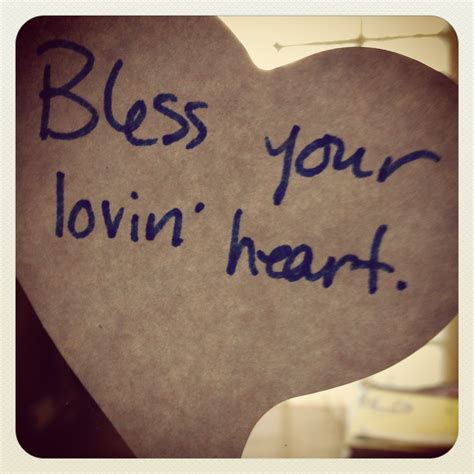 Bless your
lovin' heart.